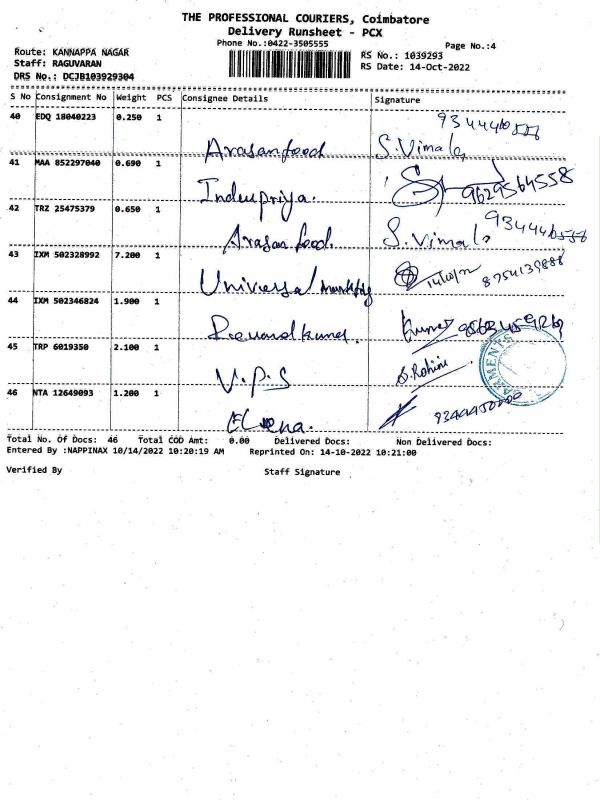 THE PROFESSIONAL COURIERS, Coimbatore
Delivery Runsheet - PCX
Phone No.:0422-3505555
Page No.:4
Route: KANNAPPA NAGAR
RS No.: 1039293
Staff: RAGUVARAN
RS Date: 14-Oct-2022
DRS No.: DCJB103929304
S No Consignment No Weight PCS Consignee Details Signature
40 EDQ 18040223 0.250 1
Arasan food S.Vimala
41 MAA 852297040 0.690 1
Indupriya. 9629564558
42 TRZ 25475379 0.650 1
Arasan food. S.Vimala
43 IXM 502328992 7.200 1
Universal 14/10/22
44 IXM 502346824 1.900 1
Kumar
45 TRP 6019350 2.100 1
V.P.S S.Rohini
46 NTA 12649093 1.200 1
Total No. Of Docs: 46 Total COD Amt: 0.00 Delivered Docs: Non Delivered Docs:
Entered By :NAPPINAX 10/14/2022 10:20:19 AM Reprinted On: 14-10-2022 10:21:00
Verified By Staff Signature